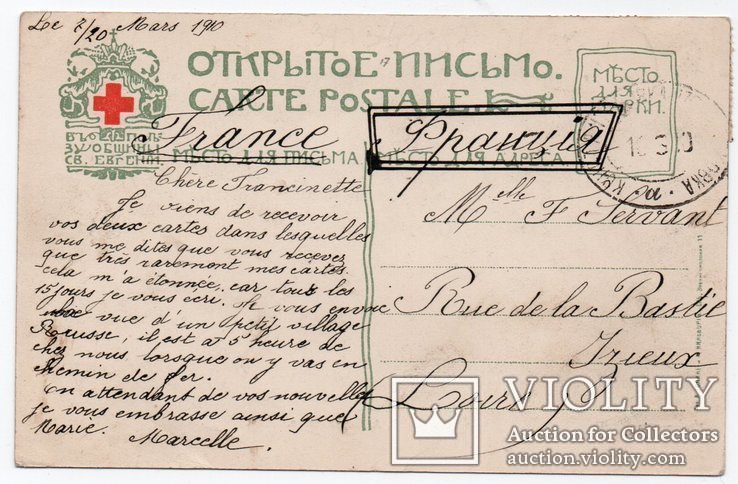 Le 7/20 Mars 1910
ОТКРЫТОЕ ПИСЬМО.
CARTE POSTALE.
МѢСТО
ДЛЯ
МАРКИ.
ВЪ ПОЛЬ
ЗУ ОБЩИНЫ
СВ. ЕВГЕНІИ.
France
Франція
МѢСТО ДЛЯ ПИСЬМА
МѢСТО ДЛЯ АДРЕСА
Chère Francinette
Je viens de recevoir
vos deux cartes dans lesquelles
vous me dites que vous recever
que très rarement mes cartes.
cela m'a étonnée, car tous les
15 jours je vous écri. Je vous envoie
vue d'un petit village
Rousse, il est a 5 heure de
chez nous lorsque on y vas en
chemin de fer.
En attendant de vos nouvelles
je vous embrasse ainsi que
Marie.
Marcelle.
Melle F Servant
Rue de la Bastie
Izieux
Loire
VIOLITY
Auction for Collectors
auction.violity.com